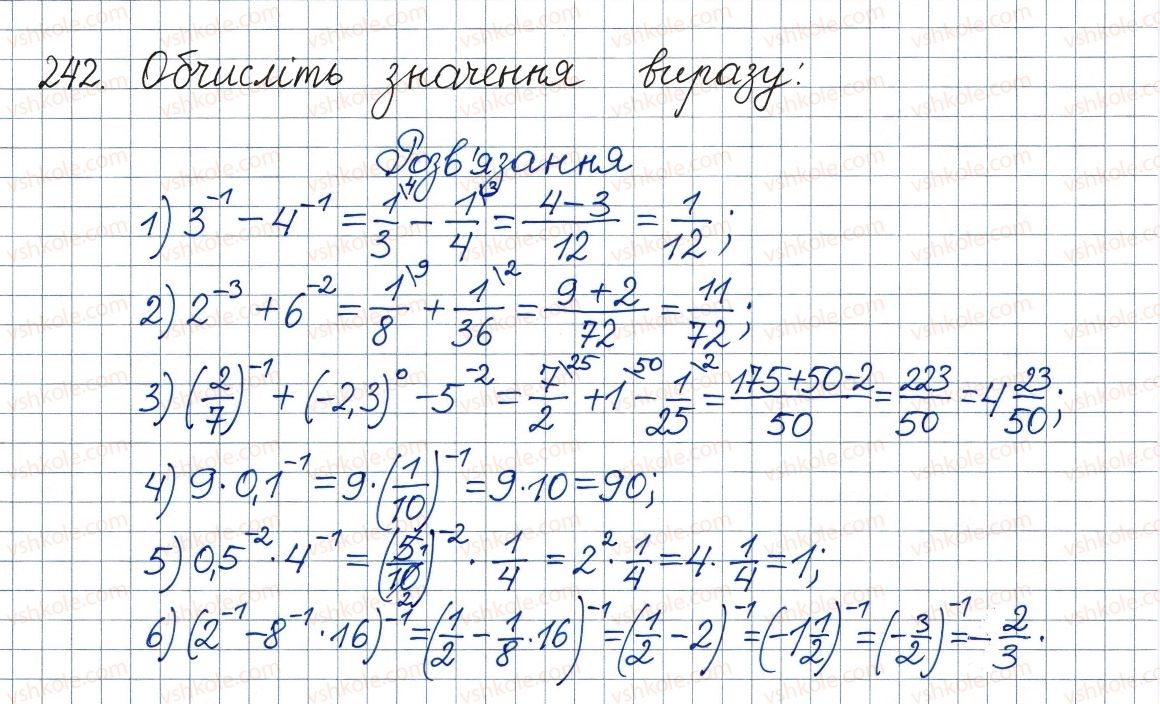 242. Обчисліть значення виразу:
Розв'язання
1) 3⁻¹ − 4⁻¹ = 1/3\⁴ − 1/4\³ = (4−3)/12 = 1/12;
2) 2⁻³ + 6⁻² = 1/8\⁹ + 1/36\² = (9+2)/72 = 11/72;
3) (2/7)⁻¹ + (−2,3)⁰ − 5⁻² = 7/2\²⁵ + 1\⁵⁰ − 1/25\² = (175+50−2)/50 = 223/50 = 4 23/50;
4) 9·0,1⁻¹ = 9·(1/10)⁻¹ = 9·10 = 90;
5) 0,5⁻²·4⁻¹ = (5 1/10 2)⁻² · 1/4 = 2²·1/4 = 4·1/4 = 1;
6) (2⁻¹ − 8⁻¹·16)⁻¹ = (1/2 − 1/8·16)⁻¹ = (1/2 − 2)⁻¹ = (−1 1/2)⁻¹ = (−3/2)⁻¹ = −2/3.
vshkole.com